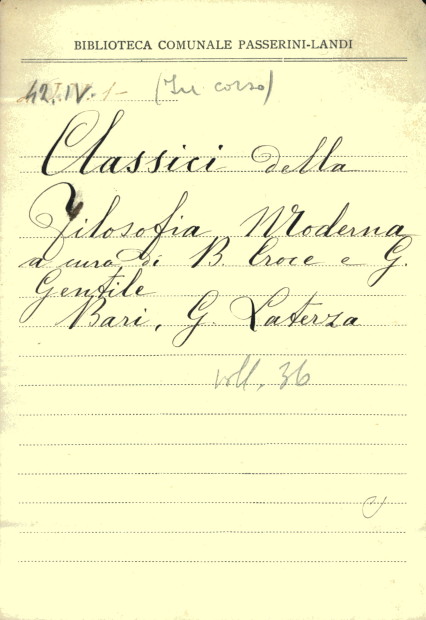 BIBLIOTECA COMUNALE PASSERINI-LANDI
42.IV.1- (In corso)
Classici della
Filosofia Moderna
a cura di B. Croce e G.
Gentile
Bari, G. Laterza
voll. 36